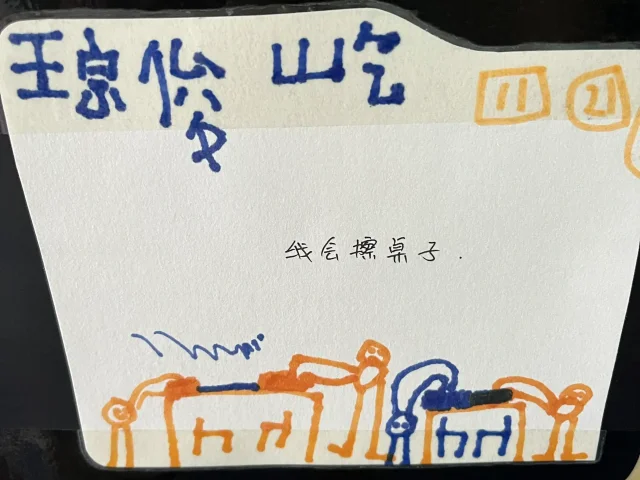 王宗俊 山乞 11 21
我会擦桌子.